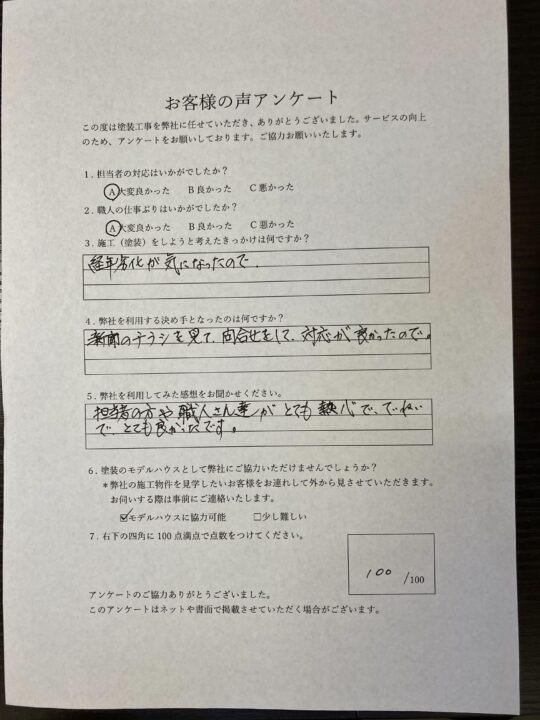 お客様の声アンケート
この度は塗装工事を弊社に任せていただき、ありがとうございました。サービスの向上
のため、アンケートをお願いしております。ご協力お願いいたします。
1．担当者の対応はいかがでしたか？
A大変良かった B良かった C悪かった
2．職人の仕事ぶりはいかがでしたか？
A大変良かった B良かった C悪かった
3．施工（塗装）をしようと考えたきっかけは何ですか？
経年劣化が気になったので。
4．弊社を利用する決め手となったのは何ですか？
新聞のチラシを見て、問合せをして、対応が良かったので。
5．弊社を利用してみた感想をお聞かせください。
担当者の方や職人さん達がとても熱心で、ていねい
で、とても良かったです。
6．塗装のモデルハウスとして弊社にご協力いただけませんでしょうか？
＊弊社の施工物件を見学したいお客様をお連れして外から見させていただきます。
お伺いする際は事前にご連絡いたします。
☑モデルハウスに協力可能 □少し難しい
7．右下の四角に100点満点で点数をつけてください。
100 /100
アンケートのご協力ありがとうございました。
このアンケートはネットや書面で掲載させていただく場合がございます。